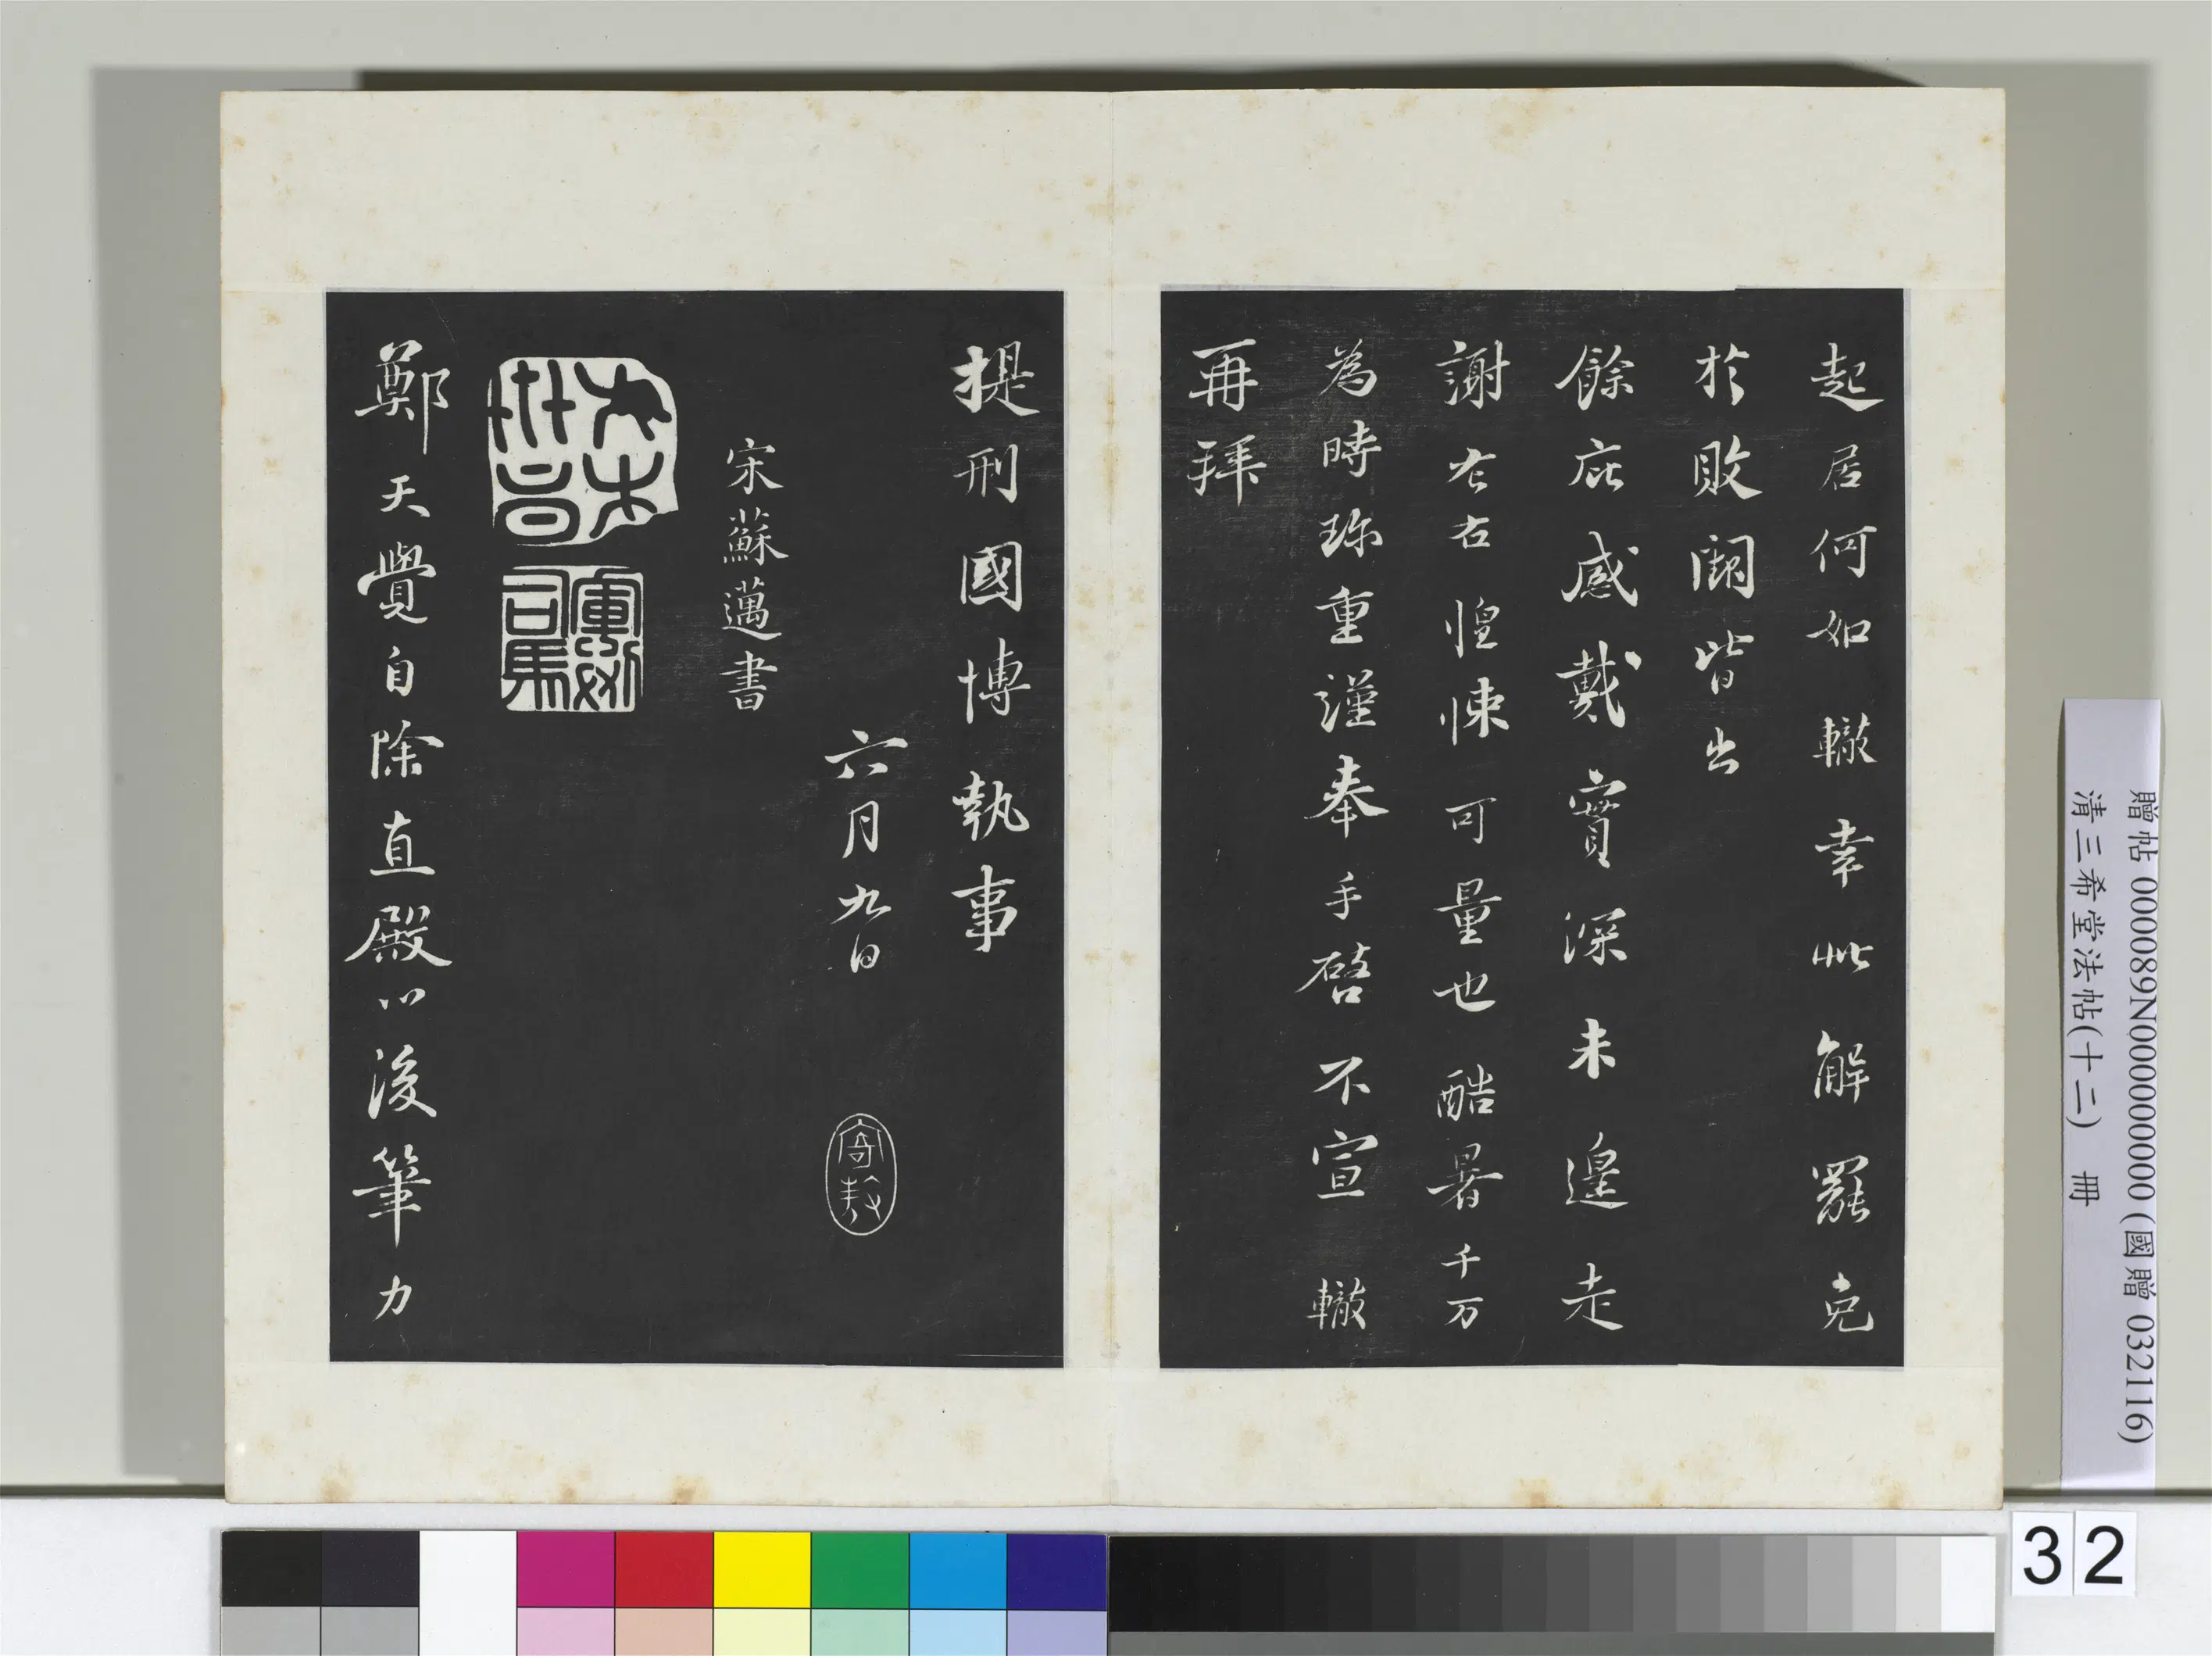 起居何如轍幸此解罷免
於敗闕皆出
餘庇感戴實深未遑走
謝左右惶悚可量也酷暑千万
為時珎重謹奉手啓不宣轍
再拜
提刑國博執事
六月九日
宋蘇邁書
鄭天覺自除直殿以後筆力
贈帖 000089N000000000 (國贈 032116)
清三希堂法帖(十二) 冊
32